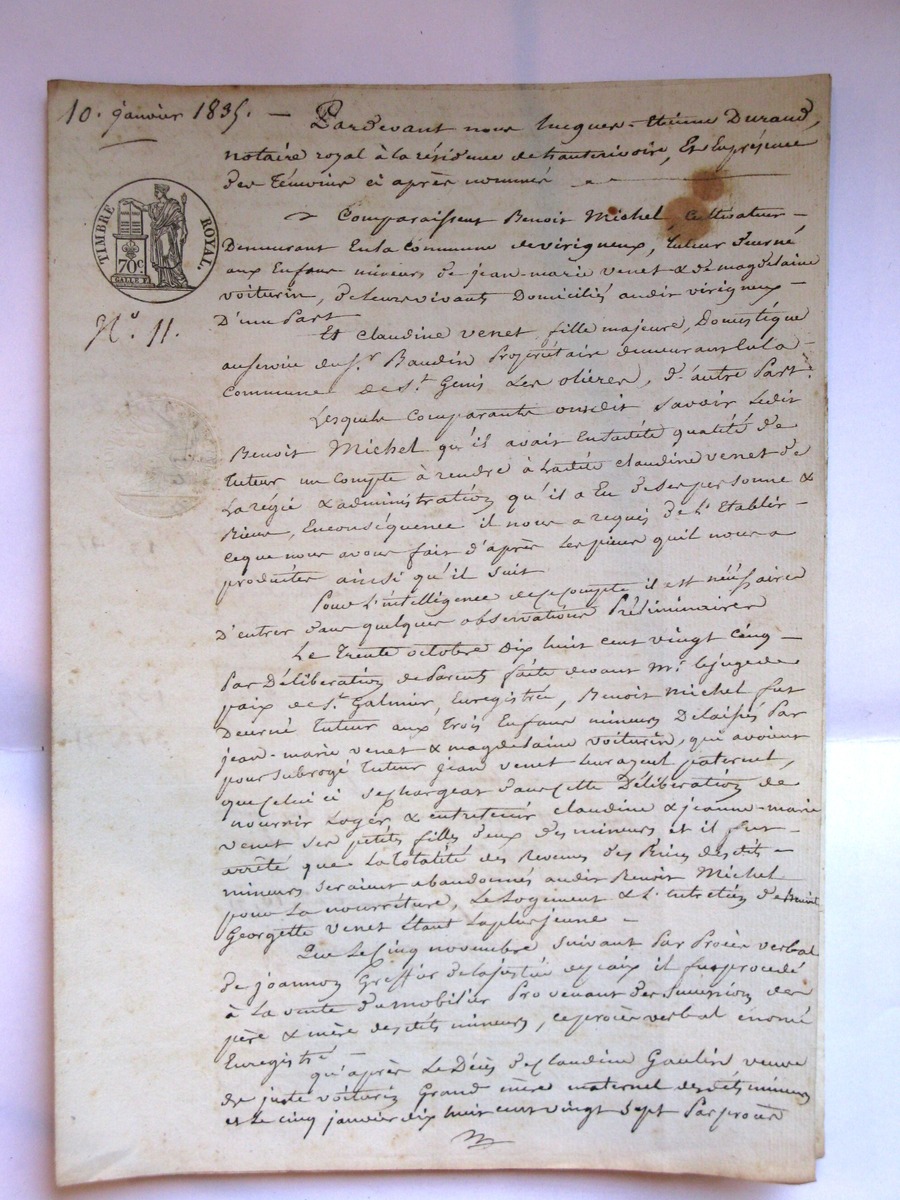 10. janvier 1835. — Pardevant nous Jacques-Etienne Durand,
notaire royal à la résidence de hauterivoire, Et En présence
des témoins ci après nommés
TIMBRE ROYAL.
70c
Comparaissent Benoit Michel, Cultivateur
Demeurant En la Commune de virigneux, tuteur décerné
aux Enfans mineurs de jean-marie venet & de magdelaine
voiturin, de leurs vivants Domiciliés audit virigneux
D'une Part
N.° 11.
Et Claudine venet, fille majeure, Domestique
au servie du S.r Baudin Propriétaire demeurant En la
Commune de S.t Genis Les olieres, D'autre Part.
Lesquels Comparants ont dit savoir Ledit
Benoit Michel qu'il avait En ladite qualité de
tuteur un Compte à rendre à Ladite Claudine venet de
La régie & administration qu'il a Eu de ses personne &
Biens, En conséquence il nous a requis de L'Etablir
ce que nous avons fait d'après Les pieces qu'il nous a
produites ainsi qu'il suit
Pour L'intelligence de ce compte il est nécessaire
D'entrer dans quelques observations Préliminaires
Le trente octobre Dix huit cent vingt Cinq
Par Déliberation de Parents faite devant M.r le juge de
paix de S.t Galmier, Enregistrée, Benoit Michel fut
Décerné tuteur aux trois Enfans mineurs Délaissés Par
jean-marie venet & magdelaine voiturin, qui avoient
pour subrogé tuteur jean venet leur ayeul paternel,
que celui ci se chargeat dans cette Déliberation de
nourrir Loger & entretenir Claudine & jeanne-marie
venet ses petites filles deux des mineurs et il fut
arrêté que La totalité des Revenus des Biens desdits
mineurs seraient abandonnés audit Benoit Michel
pour La nourriture, Le Logement & L'entretien de
Georgette venet étant La plus jeune
Que Le Cinq novembre suivant Par Procès verbal
de joannon Greffier de la justice de paix il fut procédé
à La vente du mobilier Provenant des succession des
père & mère desdits mineurs, ce procès verbal énoncé
Enregistré
qu'après Le Décès de Claudine Gaulin veuve
de juste voiturin Grand mère maternel desdits mineurs
et Le cinq janvier dix huit cent vingt Sept Par procès